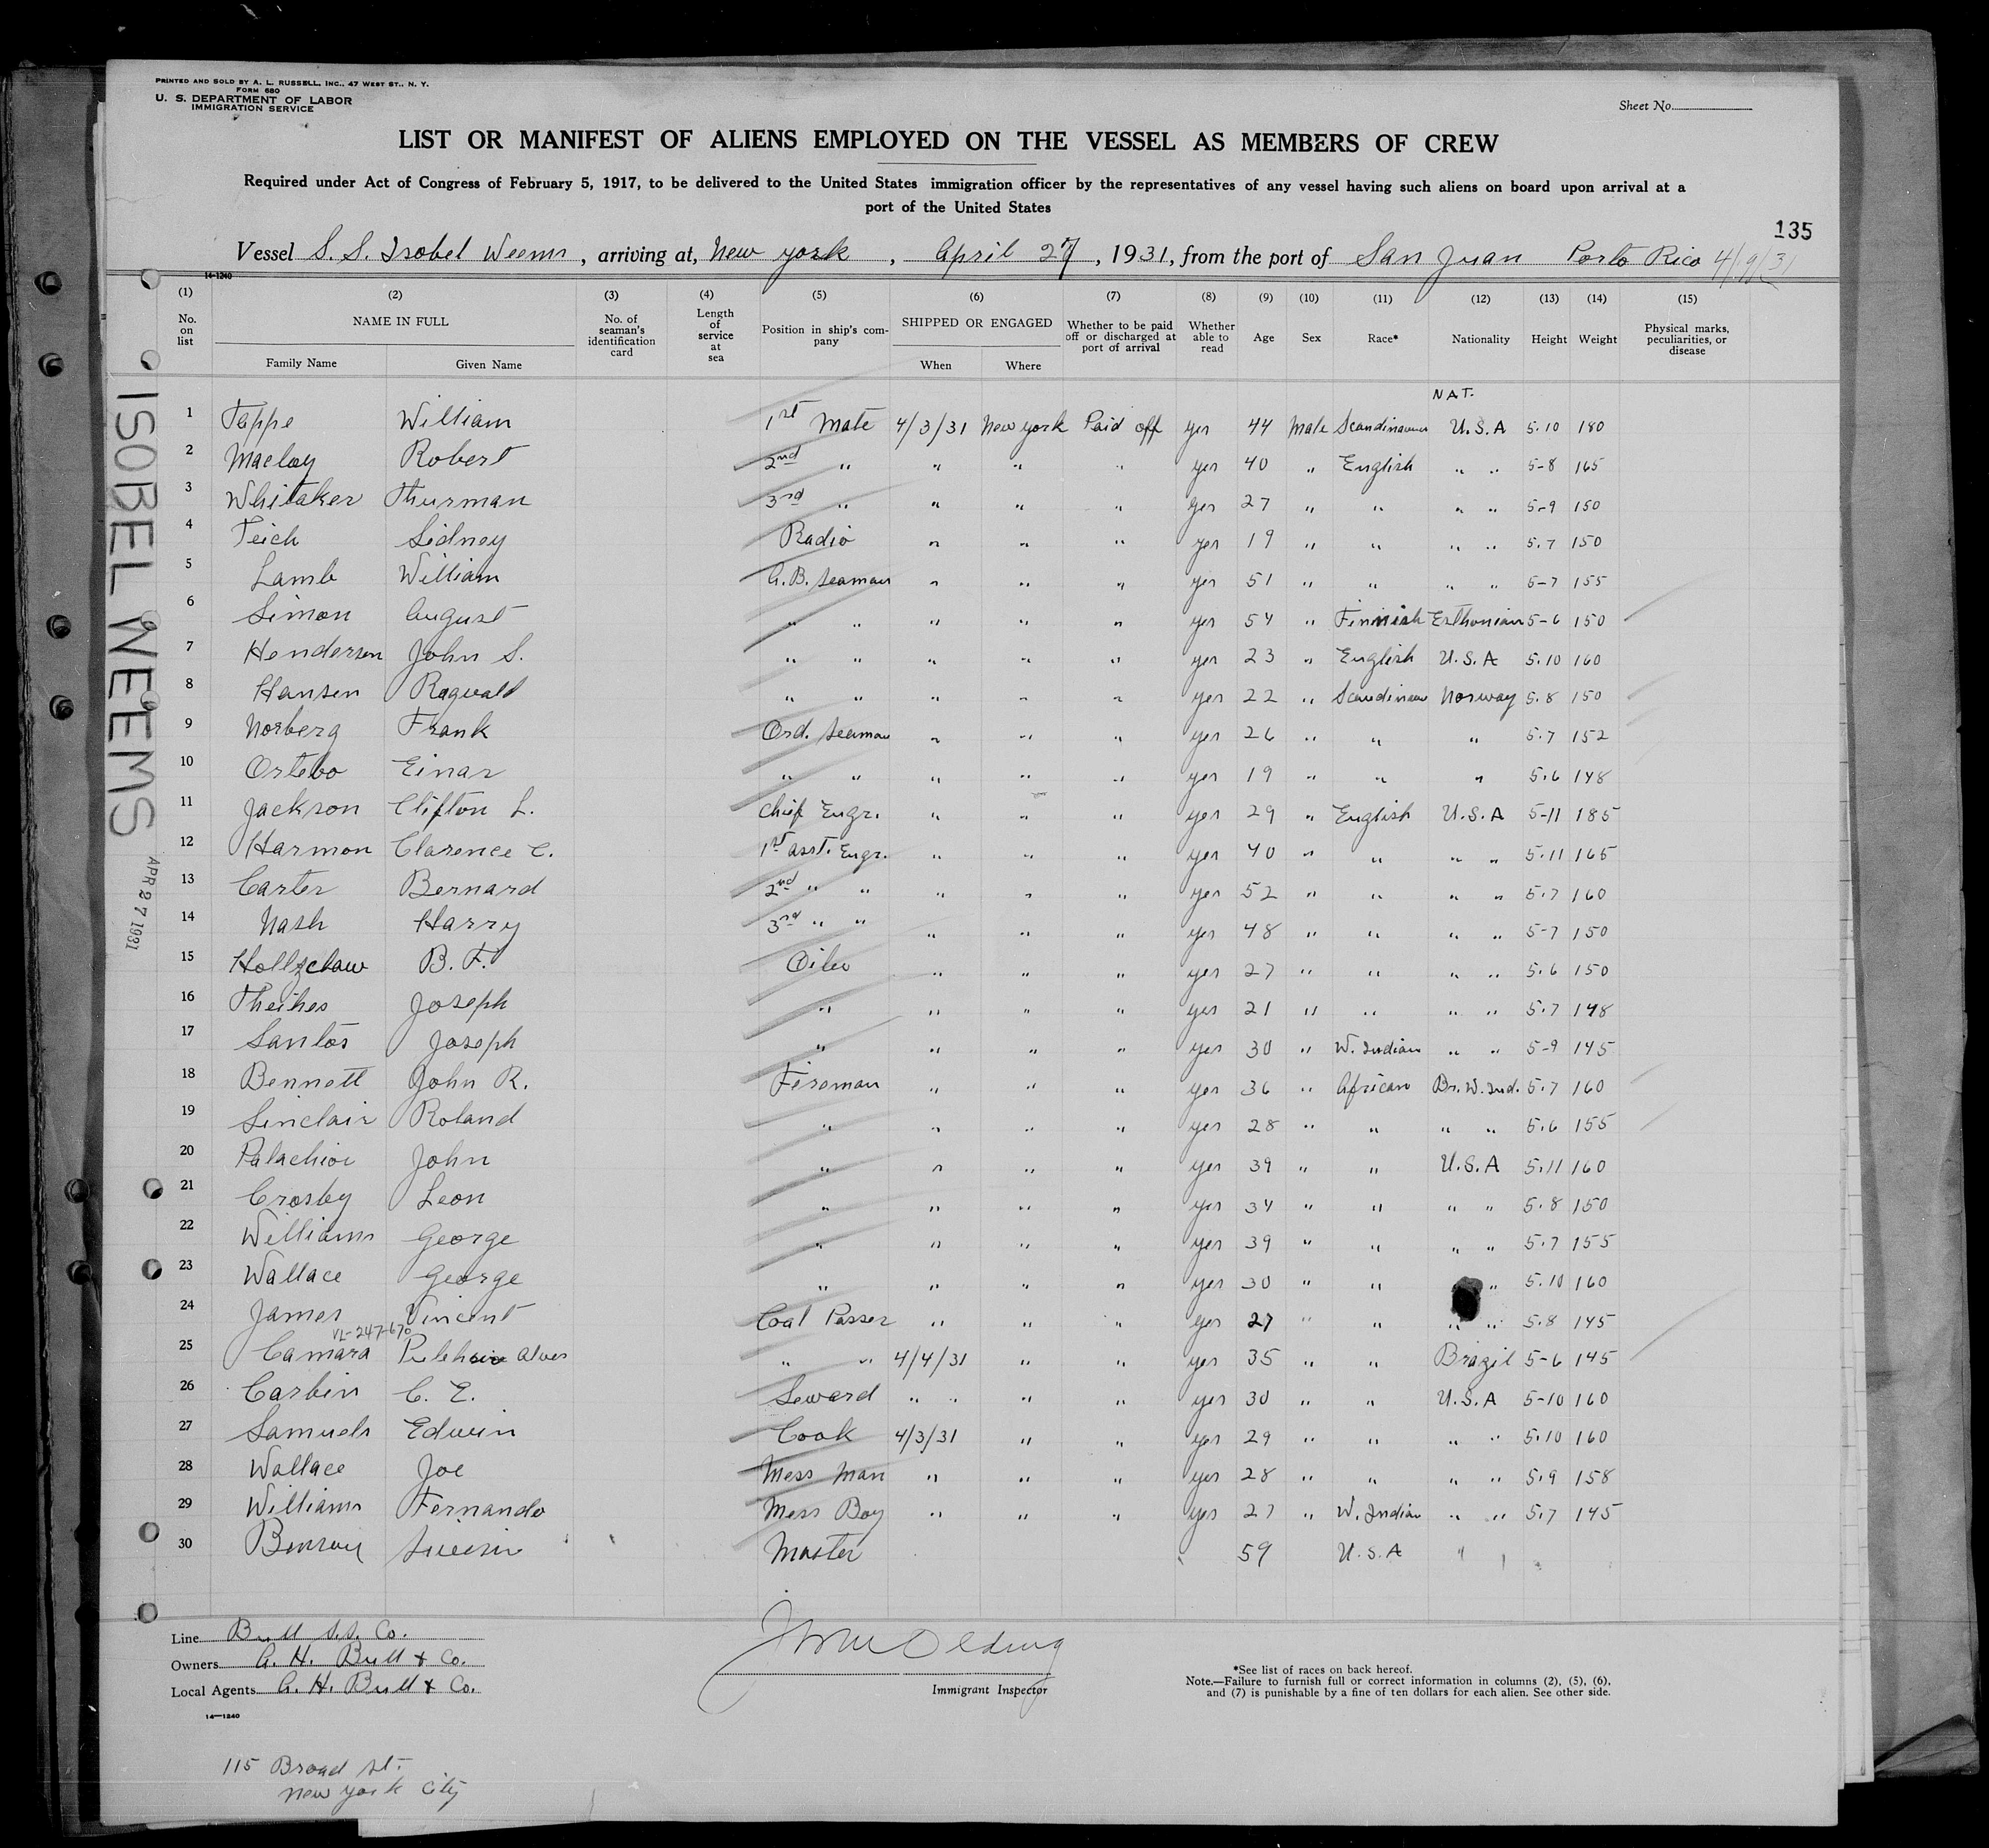 PRINTED AND SOLD BY A. L. RUSSELL, INC., 47 WEST ST., N. Y.
FORM 680
U. S. DEPARTMENT OF LABOR
IMMIGRATION SERVICE
Sheet No.
LIST OR MANIFEST OF ALIENS EMPLOYED ON THE VESSEL AS MEMBERS OF CREW
Required under Act of Congress of February 5, 1917, to be delivered to the United States immigration officer by the representatives of any vessel having such aliens on board upon arrival at a
port of the United States
135
Vessel S. S. Isobel Weems, arriving at, New York, April 27, 1931, from the port of San Juan Porto Rico 4/19/31
14-1240
(1) (2) (3) (4) (5) (6) (7) (8) (9) (10) (11) (12) (13) (14) (15)
No. on list NAME IN FULL Family Name Given Name No. of seaman's identification card Length of service at sea Position in ship's company SHIPPED OR ENGAGED When Where Whether to be paid off or discharged at port of arrival Whether able to read Age Sex Race* Nationality Height Weight Physical marks, peculiarities, or disease
NAT.
1 Tappe William 1st Mate 4/3/31 New York Paid off yes 44 Male Scandinavian U.S.A 5.10 180
2 Maclay Robert 2nd " " " " yes 40 " English " " 5-8 165
3 Whitaker Thurman 3rd " " " " yes 27 " " " " 5-9 150
4 Teich Sidney Radio " " " yes 19 " " " " 5.7 150
5 Lamb William A.B. Seaman " " " yes 51 " " " " 5-7 155
6 Simon August " " " " " yes 54 " Finnish Esthonian 5-6 150
7 Henderson John S. " " " " " yes 23 " English U.S.A 5.10 160
8 Hansen Ragvald " " " " " yes 22 " Scandinav Norway 5.8 150
9 Norberg Frank Ord. Seaman " " " yes 26 " " " 5.7 152
10 Ortebo Einar " " " " " yes 19 " " " 5.6 148
11 Jackson Clifton L. Chief Engr. " " " yes 29 " English U.S.A 5-11 185
12 Harmon Clarence C. 1st asst. Engr. " " " yes 40 " " " " 5.11 165
13 Carter Bernard 2nd " " " " " yes 52 " " " " 5.7 160
14 Nash Harry 3rd " " " " " yes 48 " " " " 5-7 150
15 Holtzclaw B. F. Oiler " " " yes 27 " " " " 5.6 150
16 Theihes Joseph " " " " yes 21 " " " " 5.7 148
17 Santos Joseph " " " " yes 30 " W. Indian " " 5-9 145
18 Bennett John R. Fireman " " " yes 36 " African Br. W. Ind. 5.7 160
19 Sinclair Roland " " " " yes 28 " " " " 5.6 155
20 Palachior John " " " " yes 39 " " U.S.A 5.11 160
21 Crosby Leon " " " " yes 34 " " " " 5.8 150
22 Williams George " " " " yes 39 " " " " 5.7 155
23 Wallace George " " " " yes 30 " " " 5.10 160
24 James Vincent Coal Passer " " " yes 27 " " " " 5.8 145
VL-247-670
25 Camara Alves " " 4/4/31 " " yes 35 " " Brazil 5-6 145
26 Carbin C. E. Seward " " " " yes 30 " " U.S.A 5-10 160
27 Samuels Edwin Cook 4/3/31 " " yes 29 " " " " 5.10 160
28 Wallace Joe Mess Man " " " yes 28 " " " " 5.9 158
29 Williams Fernando Mess Boy " " " yes 27 " W. Indian " " 5.7 145
30 Master 59 U.S.A "
ISOBEL WEEMS
APR 27 1931
Line Bull S.S. Co.
Owners A. H. Bull & Co.
Local Agents A. H. Bull & Co.
14-1240
Immigrant Inspector
*See list of races on back hereof.
Note.—Failure to furnish full or correct information in columns (2), (5), (6),
and (7) is punishable by a fine of ten dollars for each alien. See other side.
115 Broad St.
New York City